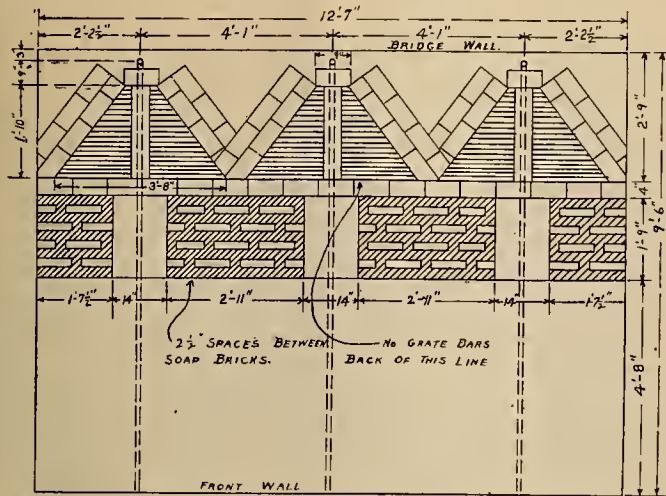 12'-7"
2'-2½" 4'-1" 4'-1" 2'-2½"
BRIDGE WALL.
9" 3"
1'-10"
2'-9"
3'-8"
4"
9'-6"
1'-9"
1'-7½" 14" 2'-11" 14" 2'-11" 14" 1'-7½"
2½" SPACES BETWEEN
SOAP BRICKS.
NO GRATE BARS
BACK OF THIS LINE
4'-8"
FRONT WALL